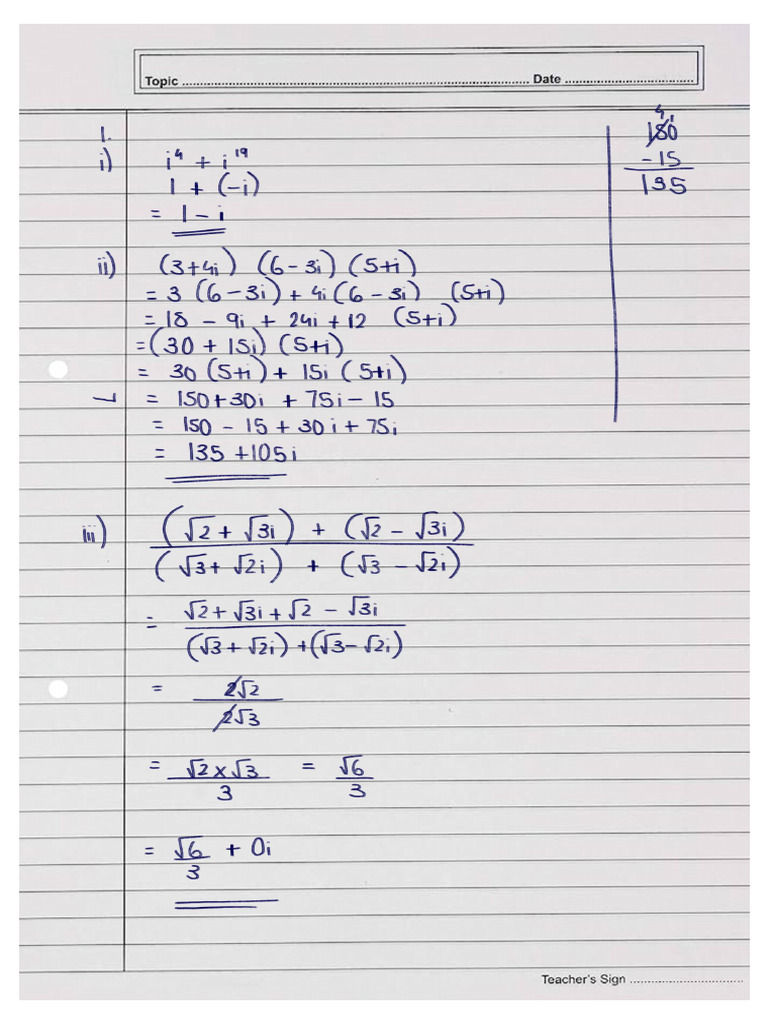 Topic ........................................................................................ Date ....................................
1.
i) i⁴ + i¹⁹
1 + (-i)
= 1 - i
ii) (3+4i) (6-3i) (5+i)
= 3 (6-3i) + 4i(6-3i) (5+i)
= 18 - 9i + 24i + 12 (5+i)
= (30 + 15i) (5+i)
= 30 (5+i) + 15i (5+i)
= 150+30i + 75i - 15
= 150 - 15 + 30i + 75i
= 135 + 105i
iii) (√2 + √3i) + (√2 - √3i)
(√3 + √2i) + (√3 - √2i)
= √2 + √3i + √2 - √3i
(√3 + √2i) + (√3 - √2i)
= 2√2
2√3
= √2 × √3 = √6
3 3
= √6 + 0i
3
4 1
150
- 15
135
Teacher's Sign ................................